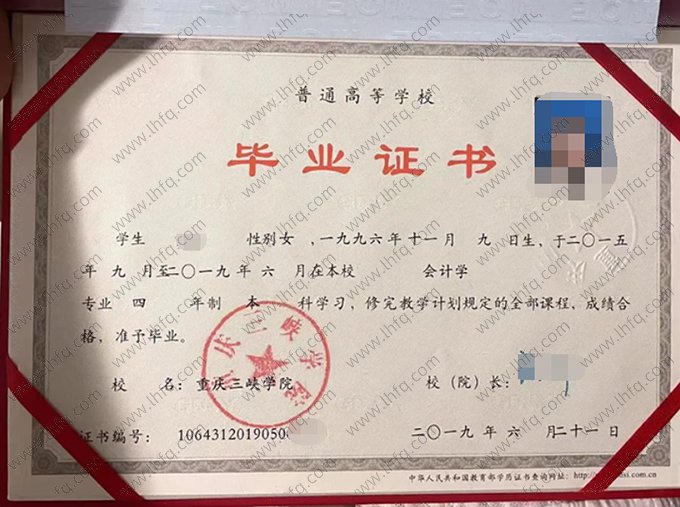 普通高等学校
毕业证书
学生 性别女,一九九六年十一月 九日生,于二〇一五
年 九 月至二〇一九年 六 月在本校 会计学
专业 四 年制 本 科学习,修完教学计划规定的全部课程,成绩合
格,准予毕业。
重庆三峡学院
校 名:重庆三峡学院 校(院)长:
证书编号: 1064312019050 二〇一九 年 六 月二十一日
中华人民共和国教育部学历证书查询网址:
www.lhfq.com